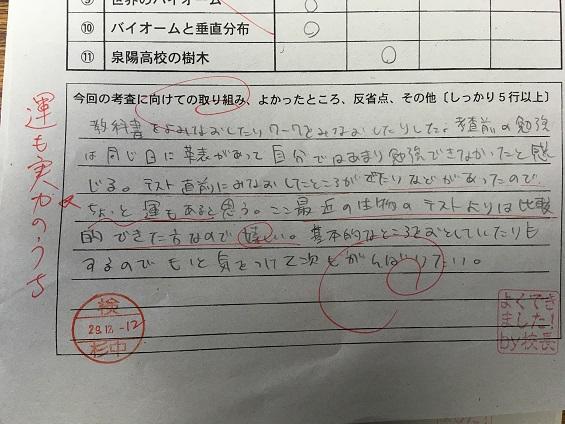 ⑨ 世界のバイオーム ○
⑩ バイオームと垂直分布 ○
⑪ 泉陽高校の樹木 ○
今回の考査に向けての取り組み、よかったところ、反省点、その他〔しっかり5行以上〕
教科書をよみなおしたりワークをみなおしたりした。考査前の勉強
は同じ日に発表があって自分ではあまり勉強できなかったと感
じる。テスト直前にみなおしたところがでたりなどがあったので
ちょっと運もあると思う。ここ最近の生物のテストよりは比較
的できた方なので嬉しい。基本的なところをおとしていたりも
するのでもっと気をつけて次もがんばりたい。
運も実力のうち
検
29.12.-12
杉中
よくでき
ました!
by校長